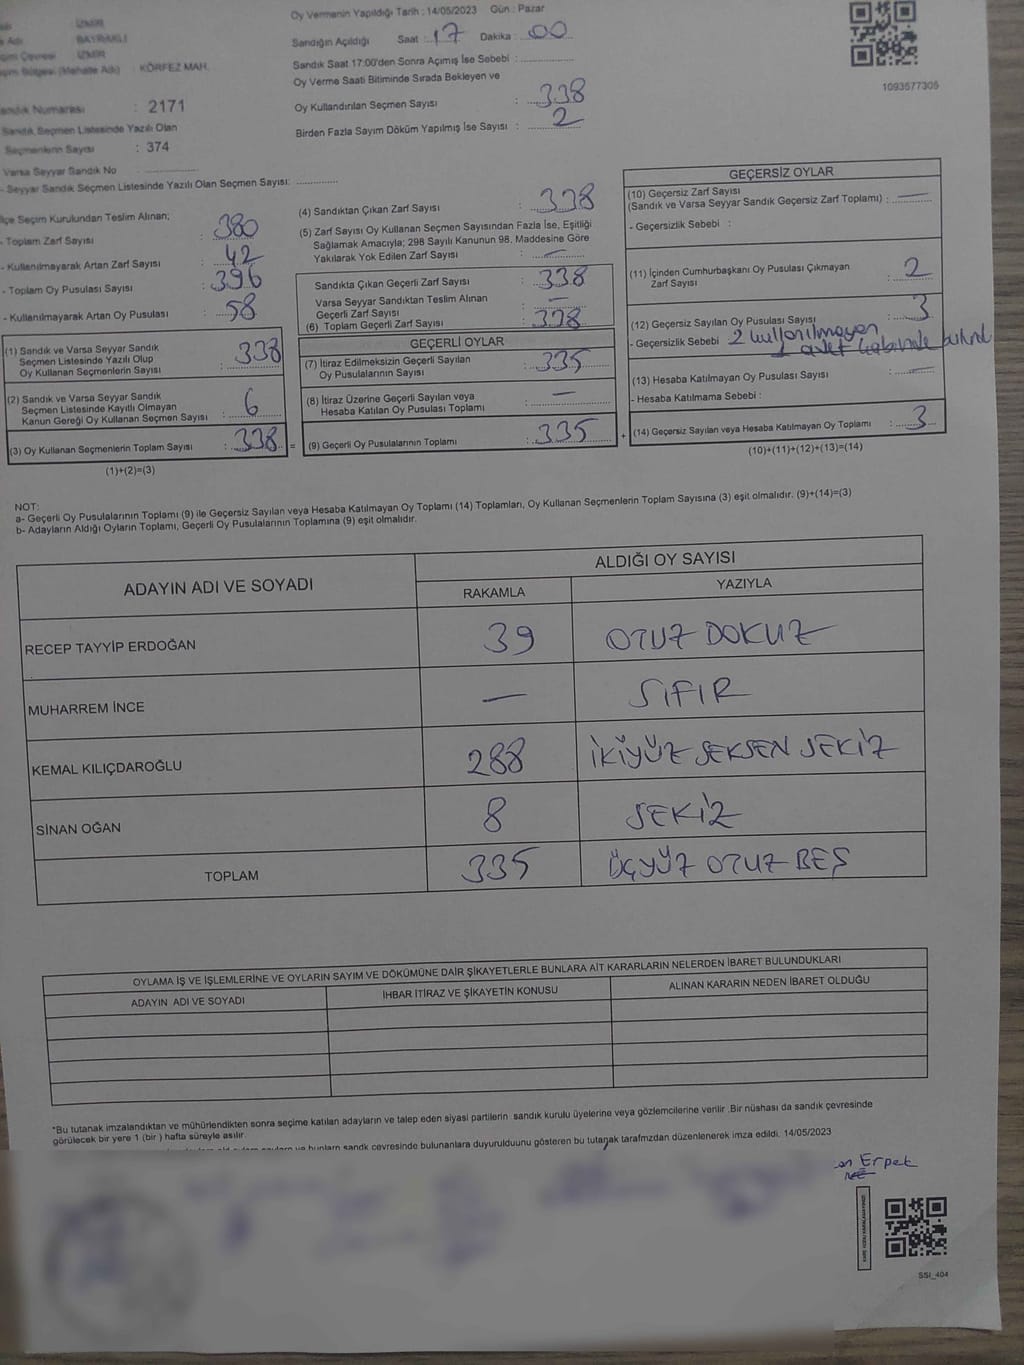 İZMİR
BAYRAKLI
İZMİR
KÖRFEZ MAH.
Sandık Numarası : 2171
Sandık Seçmen Listesinde Yazılı Olan
Seçmenlerin Sayısı : 374
Varsa Seyyar Sandık No :
- Seyyar Sandık Seçmen Listesinde Yazılı Olan Seçmen Sayısı:
Oy Vermenin Yapıldığı Tarih : 14/05/2023 Gün : Pazar
Sandığın Açıldığı Saat : 17 Dakika : 00
Sandık Saat 17:00'den Sonra Açımış İse Sebebi :
Oy Verme Saati Bitiminde Sırada Bekleyen ve
Oy Kullandırılan Seçmen Sayısı : 338
Birden Fazla Sayım Döküm Yapılmış İse Sayısı : 2
1093577305
İlçe Seçim Kurulundan Teslim Alınan;
- Toplam Zarf Sayısı : 380
- Kullanılmayarak Artan Zarf Sayısı : 42
- Toplam Oy Pusulası Sayısı : 396
- Kullanılmayarak Artan Oy Pusulası : 58
(1) Sandık ve Varsa Seyyar Sandık
Seçmen Listesinde Yazılı Olup
Oy Kullanan Seçmenlerin Sayısı : 338
(2) Sandık ve Varsa Seyyar Sandık
Seçmen Listesinde Kayıtlı Olmayan
Kanun Gereği Oy Kullanan Seçmen Sayısı : 6
(3) Oy Kullanan Seçmenlerin Toplam Sayısı : 338 =
(1)+(2)=(3)
(4) Sandıktan Çıkan Zarf Sayısı : 338
(5) Zarf Sayısı Oy Kullanan Seçmen Sayısından Fazla İse, Eşitliği
Sağlamak Amacıyla; 298 Sayılı Kanunun 98. Maddesine Göre
Yakılarak Yok Edilen Zarf Sayısı : —
Sandıkta Çıkan Geçerli Zarf Sayısı : 338
Varsa Seyyar Sandıktan Teslim Alınan
Geçerli Zarf Sayısı : —
(6) Toplam Geçerli Zarf Sayısı : 338
GEÇERLİ OYLAR
(7) İtiraz Edilmeksizin Geçerli Sayılan
Oy Pusulalarının Sayısı : 335
(8) İtiraz Üzerine Geçerli Sayılan veya
Hesaba Katılan Oy Pusulası Toplamı : —
(9) Geçerli Oy Pusulalarının Toplamı : 335 +
GEÇERSİZ OYLAR
(10) Geçersiz Zarf Sayısı
(Sandık ve Varsa Seyyar Sandık Geçersiz Zarf Toplamı) : —
- Geçersizlik Sebebi :
(11) İçinden Cumhurbaşkanı Oy Pusulası Çıkmayan
Zarf Sayısı : 2
(12) Geçersiz Sayılan Oy Pusulası Sayısı : 3
- Geçersizlik Sebebi 2 kullanılmayan
1 evet
(13) Hesaba Katılmayan Oy Pusulası Sayısı : —
- Hesaba Katılmama Sebebi :
(14) Geçersiz Sayılan veya Hesaba Katılmayan Oy Toplamı : 3
(10)+(11)+(12)+(13)=(14)
NOT:
a- Geçerli Oy Pusulalarının Toplamı (9) ile Geçersiz Sayılan veya Hesaba Katılmayan Oy Toplamı (14) Toplamları, Oy Kullanan Seçmenlerin Toplam Sayısına (3) eşit olmalıdır. (9)+(14)=(3)
b- Adayların Aldığı Oyların Toplamı, Geçerli Oy Pusulalarının Toplamına (9) eşit olmalıdır.
ADAYIN ADI VE SOYADI ALDIĞI OY SAYISI
RAKAMLA YAZIYLA
RECEP TAYYİP ERDOĞAN 39 OTUZ DOKUZ
MUHARREM İNCE — SIFIR
KEMAL KILIÇDAROĞLU 288 İKİYÜZ SEKSEN SEKİZ
SİNAN OĞAN 8 SEKİZ
TOPLAM 335 ÜÇYÜZ OTUZ BEŞ
OYLAMA İŞ VE İŞLEMLERİNE VE OYLARIN SAYIM VE DÖKÜMÜNE DAİR ŞİKAYETLERLE BUNLARA AİT KARARLARIN NELERDEN İBARET BULUNDUKLARI
ADAYIN ADI VE SOYADI İHBAR İTİRAZ VE ŞİKAYETİN KONUSU ALINAN KARARIN NEDEN İBARET OLDUĞU
*Bu tutanak imzalandıktan ve mühürlendikten sonra seçime katılan adayların ve talep eden siyasi partilerin sandık kurulu üyelerine veya gözlemcilerine verilir .Bir nüshası da sandık çevresinde
görülecek bir yere 1 (bir ) hafta süreyle asılır.
ve bunların sandk çevresinde bulunanlara duyurulduunu gösteren bu tutanak tarafmzdan düzenlenerek imza edildi. 14/05/2023
Erpek
SSI_404